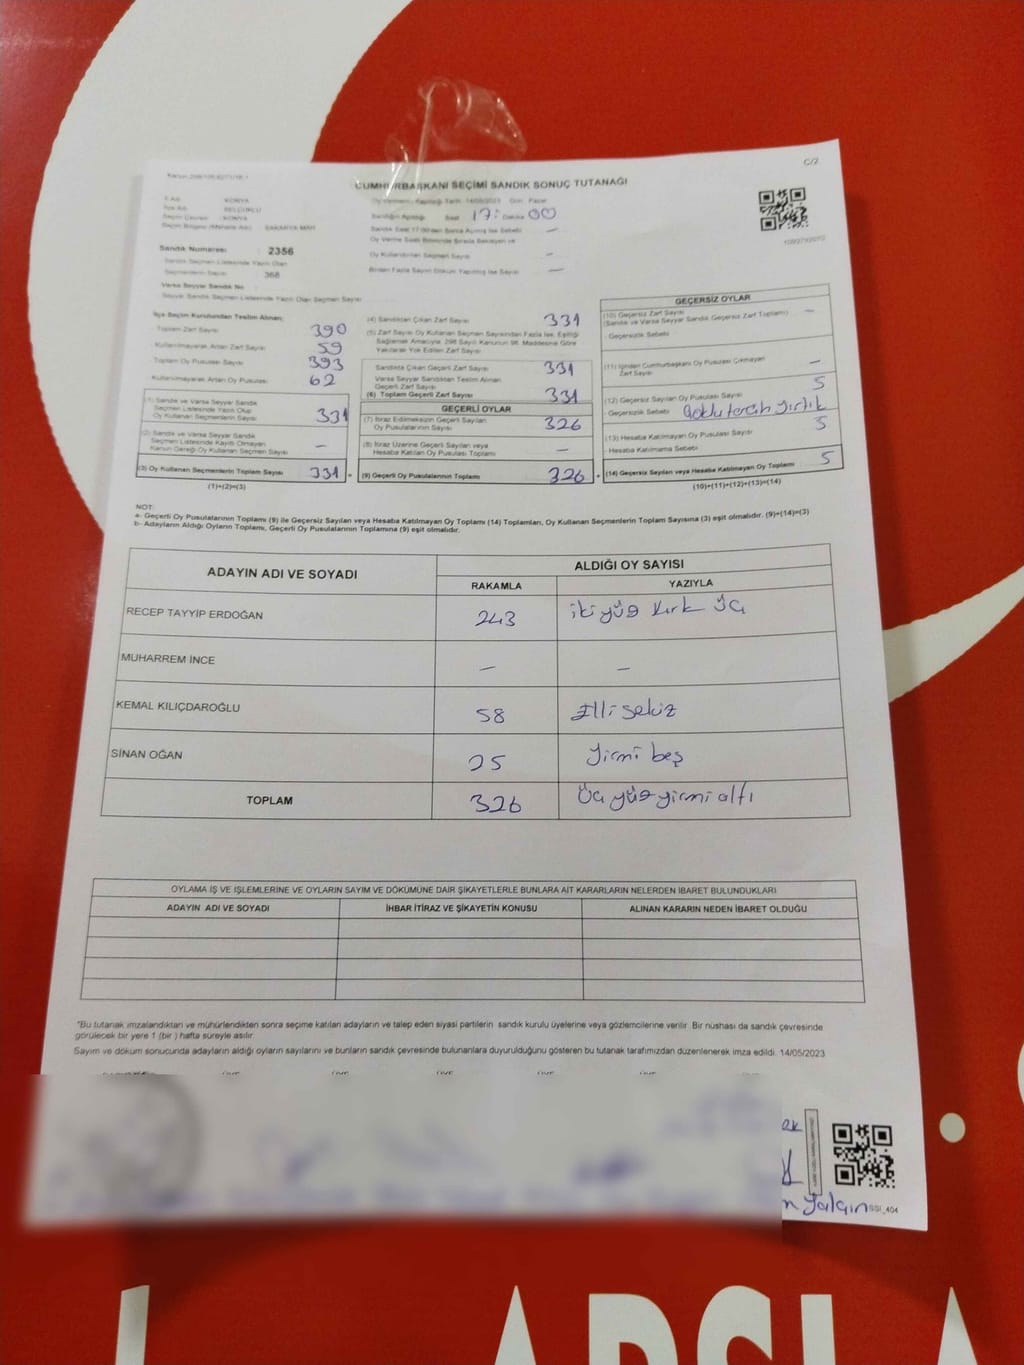 C/2
CUMHURBAŞKANI SEÇİMİ SANDIK SONUÇ TUTANAĞI
İl Adı : KONYA
İlçe Adı : SELÇUKLU
Seçim Çevresi : KONYA
Seçim Bölgesi (Mahalle Adı) : SAKARYA MAH
Sandık Numarası : 2356
Sandık Seçmen Listesinde Yazılı Olan
Seçmenlerin Sayısı : 368
Varsa Seyyar Sandık No
Seyyar Sandık Seçmen Listesinde Yazılı Olan Seçmen Sayısı
Oy Vermenin Yapıldığı Tarih : 14/05/2023 Gün : Pazar
Sandığın Açıldığı Saat 17: Dakika 00
Sandık Saat 17:00'den Sonra Açılmış İse Sebebi —
Oy Verme Saati Bitiminde Sırada Bekleyen ve
Oy Kullandırılan Seçmen Sayısı -
Birden Fazla Sayım Döküm Yapılmış İse Sayısı —
İlçe Seçim Kurulundan Teslim Alınan;
Toplam Zarf Sayısı 390
Kullanılmayarak Artan Zarf Sayısı 59
Toplam Oy Pusulası Sayısı 393
Kullanılmayarak Artan Oy Pusulası 62
(1) Sandık ve Varsa Seyyar Sandık
Seçmen Listesinde Yazılı Olup
Oy Kullanan Seçmenlerin Sayısı 331
(2) Sandık ve Varsa Seyyar Sandık
Seçmen Listesinde Kayıtlı Olmayan
Kanun Gereği Oy Kullanan Seçmen Sayısı -
(3) Oy Kullanan Seçmenlerin Toplam Sayısı 331
(1)+(2)=(3)
(4) Sandıktan Çıkan Zarf Sayısı 331
(5) Zarf Sayısı Oy Kullanan Seçmen Sayısından Fazla İse, Eşitliği
Sağlamak Amacıyla, 298 Sayılı Kanunun 98. Maddesine Göre
Yakılarak Yok Edilen Zarf Sayısı
Sandıkta Çıkan Geçerli Zarf Sayısı 331
Varsa Seyyar Sandıktan Teslim Alınan
Geçerli Zarf Sayısı
(6) Toplam Geçerli Zarf Sayısı 331
GEÇERLİ OYLAR
(7) İtiraz Edilmeksizin Geçerli Sayılan
Oy Pusulalarının Sayısı 326
(8) İtiraz Üzerine Geçerli Sayılan veya
Hesaba Katılan Oy Pusulası Toplamı —
(9) Geçerli Oy Pusulalarının Toplamı 326
GEÇERSİZ OYLAR
(10) Geçersiz Zarf Sayısı
(Sandık ve Varsa Seyyar Sandık Geçersiz Zarf Toplamı) —
Geçersizlik Sebebi
(11) İçinden Cumhurbaşkanı Oy Pusulası Çıkmayan
Zarf Sayısı —
(12) Geçersiz Sayılan Oy Pusulası Sayısı 5
Geçersizlik Sebebi
(13) Hesaba Katılmayan Oy Pusulası Sayısı 5
Hesaba Katılmama Sebebi
(14) Geçersiz Sayılan veya Hesaba Katılmayan Oy Toplamı 5
(10)+(11)+(12)+(13)=(14)
NOT:
a- Geçerli Oy Pusulalarının Toplamı (9) ile Geçersiz Sayılan veya Hesaba Katılmayan Oy Toplamı (14) Toplamları, Oy Kullanan Seçmenlerin Toplam Sayısına (3) eşit olmalıdır. (9)+(14)=(3)
b- Adayların Aldığı Oyların Toplamı, Geçerli Oy Pusulalarının Toplamına (9) eşit olmalıdır.
ADAYIN ADI VE SOYADI ALDIĞI OY SAYISI
RAKAMLA YAZIYLA
RECEP TAYYİP ERDOĞAN 243 iki yüz kırk üç
MUHARREM İNCE — —
KEMAL KILIÇDAROĞLU 58 Elli sekiz
SİNAN OĞAN 25 Yirmi beş
TOPLAM 326 Üç yüz yirmi altı
OYLAMA İŞ VE İŞLEMLERİNE VE OYLARIN SAYIM VE DÖKÜMÜNE DAİR ŞİKAYETLERLE BUNLARA AİT KARARLARIN NELERDEN İBARET BULUNDUKLARI
ADAYIN ADI VE SOYADI İHBAR İTİRAZ VE ŞİKAYETİN KONUSU ALINAN KARARIN NEDEN İBARET OLDUĞU
*Bu tutanak imzalandıktan ve mühürlendikten sonra seçime katılan adayların ve talep eden siyasi partilerin sandık kurulu üyelerine veya gözlemcilerine verilir. Bir nüshası da sandık çevresinde
görülecek bir yere 1 (bir ) hafta süreyle asılır.
Sayım ve döküm sonucunda adayların aldığı oyların sayılarını ve bunların sandık çevresinde bulunanlara duyurulduğunu gösteren bu tutanak tarafımızdan düzenlenerek imza edildi. 14/05/2023
Yalçın
SSI_404